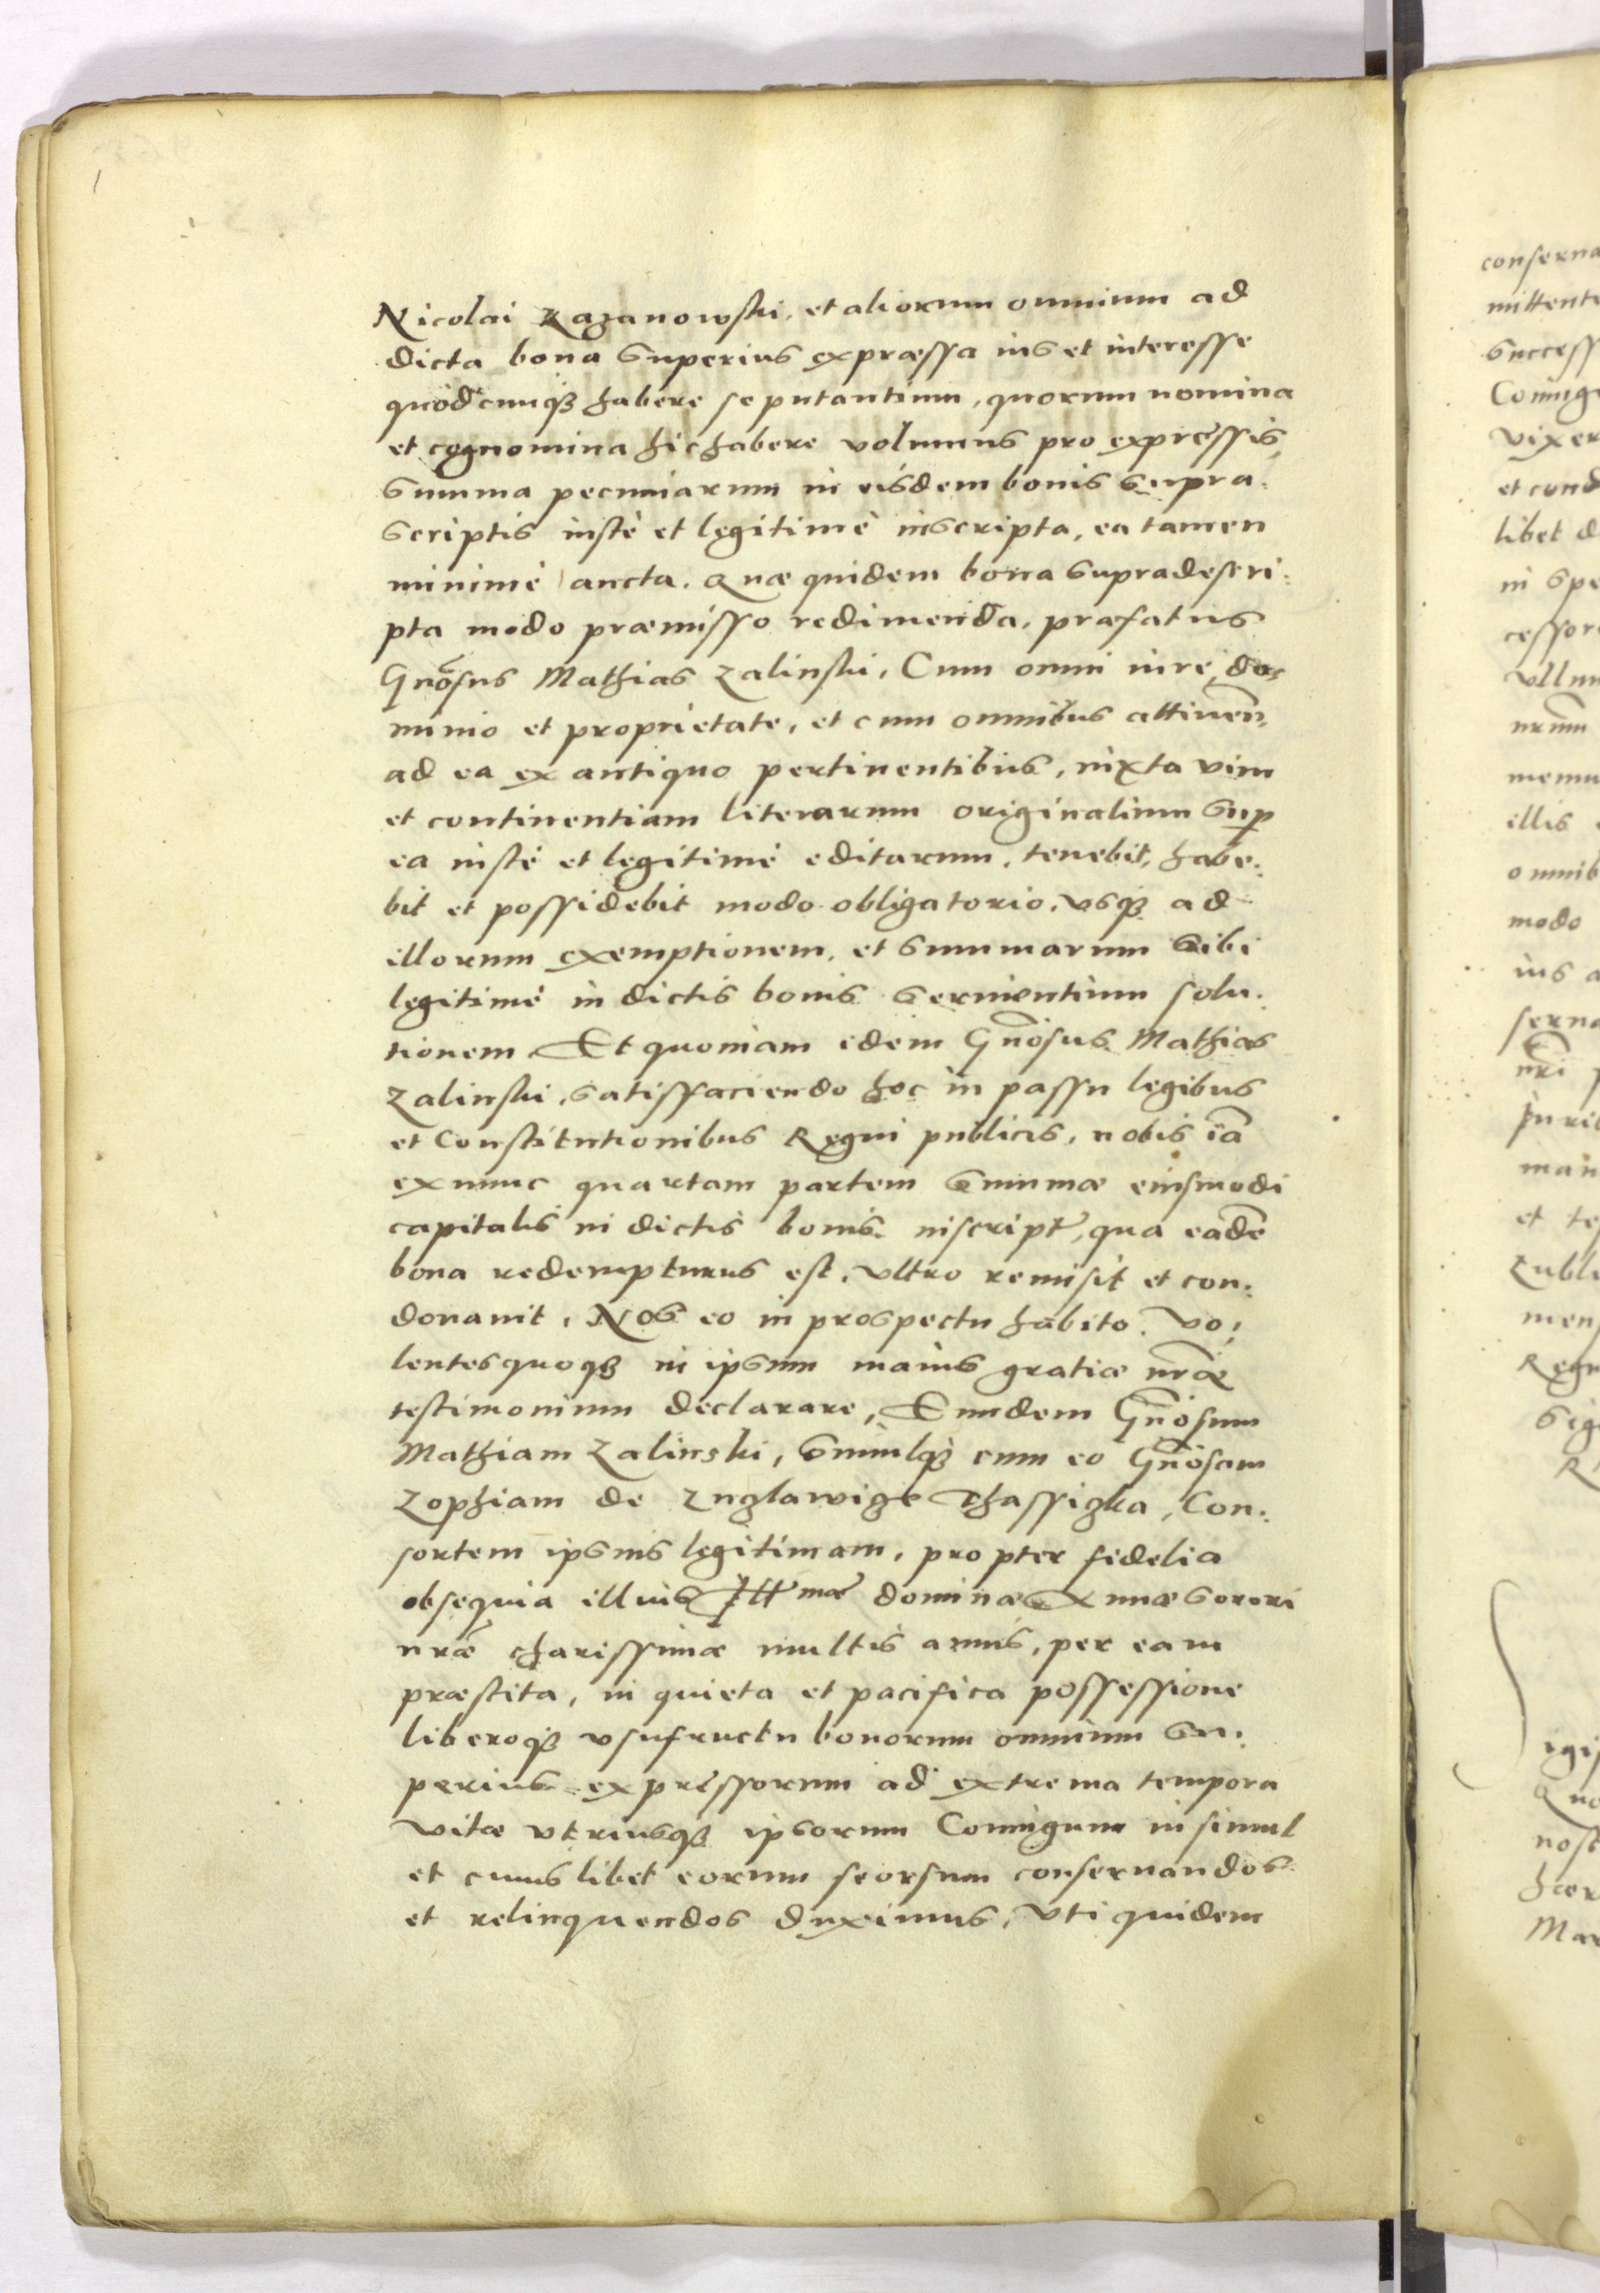 Nicolai Kazanowski, et aliorum omnium ad
dicta bona superius expræssa ius et interesse
quodcunq3 habere se putantium, quorum nomina
et cognomina hic habere volumus pro expressis,
summa pecuniarum in eisdem bonis supra.
scriptis iustè et legitimè inscripta, ea tamen
minimè aucta. Quæ quidem bona supradescri:
pta modo præmisso redimenda, præfatus
Gnosus Mathias Zalinski, Cum omni iure, do:
minio et proprietate, et cum omnibus attinen,
ad ea ex antiquo pertinentibus, iuxta vim
et continentiam literarum originalium sup
ea iustè et legitimè editarum, tenebit, habe:
bit et possidebit modo obligatorio, vsq3 ad
illorum exemptionem, et summarum sibi
legitimè in dictis bonis seruientium solu:
tionem Et quoniam idem Gnosus Mathias
Zalinski, satisfaciendo hoc in passu legibus
et Constitutionibus Regni publicis, nobis iã
exnunc quartam partem summæ eiusmodi
capitalis in dictis bonis inscript, qua eadẽ
bona redempturus est, vltro remisit et con:
donauit, Nos eo in prospectu habito, vo:
lentesquoq3 in ipsum maius gratiæ nræ
testimonium declarare, Eundem Gnosum
Mathiam Zalinski, simulq3 cum eo Gnosam
Zophiam de Zuglawicze Thassiczka, Con:
sortem ipsius legitimam, propter fidelia
obsequia illius Illmæ dominæ Annæ sorori
nræ charissimæ multis annis, per eam
præstita, in quieta et pacifica possessione
liberoq3 vsufructu bonorum omnium su:
perius expressorum ad extrema tempora
vitæ vtriusq3 ipsorum Coniugum insimul
et cuiuslibet eorum seorsum conseruandos
et relinquendos duximus, Vti quidem